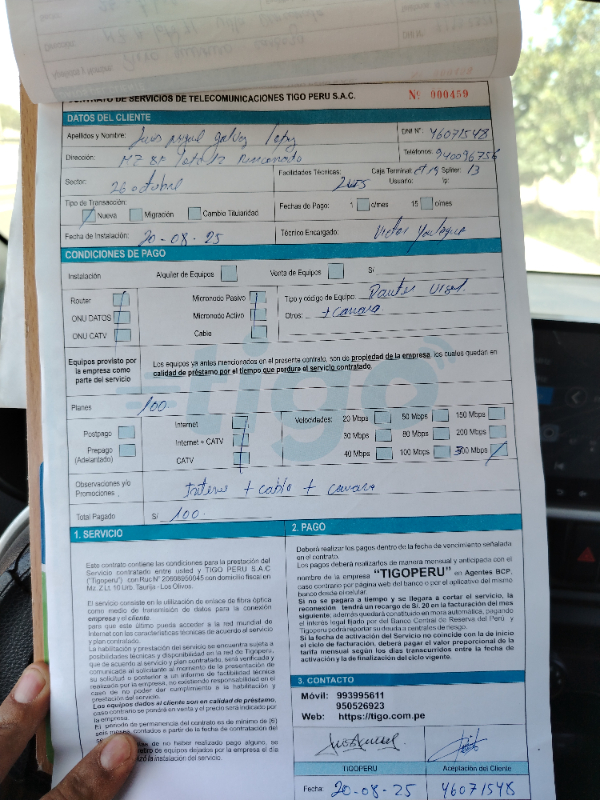 CONTRATO DE SERVICIOS DE TELECOMUNICACIONES TIGO PERU S.A.C. Nº 000459
DATOS DEL CLIENTE
Apellidos y Nombre: Luis Miguel Galvez Lopez DNI Nº: 46071548
Dirección: MZ BF Teléfonos: 940096756
Sector: 26 octubre Facilidades Técnicas: Caja Terminal: Spliner: 13
Usuario: Ip:
Tipo de Transacción:
Nueva Migración Cambio Titularidad Fechas de Pago: 1 c/mes 15 c/mes
Fecha de Instalación: 20-08-25 Técnico Encargado: Victor
CONDICIONES DE PAGO
Instalación Alquiler de Equipos Venta de Equipos S/
Router Micronodo Pasivo Tipo y código de Equipo:
ONU DATOS Micronodo Activo Otros: + camara
ONU CATV Cable
Equipos provisto por la empresa como parte del servicio
Los equipos ya antes mencionados en el presente contrato, son de propiedad de la empresa, los cuales quedan en
calidad de préstamo por el tiempo que perdure el servicio contratado.
tigo
Planes 100.
Postpago Internet Velocidades: 20 Mbps 50 Mbps 150 Mbps
Prepago (Adelantado) Internet + CATV 30 Mbps 80 Mbps 200 Mbps
CATV 40 Mbps 100 Mbps 300 Mbps
Observaciones y/o Promociones + cable + camara
Total Pagado S/ 100.
1. SERVICIO
Este contrato contiene las condiciones para la prestación del
Servicio contratado entre usted y TIGO PERU S.A.C
("Tigoperu") con Ruc N° 20608950045 con domicilio fiscal en
Mz. Z Lt. 10 Urb. Taurija - Los Olivos.
El servicio consiste en la utilización de enlace de fibra óptica
como medio de transmisión de datos para la conexión
empresa y el cliente.
para que este último pueda acceder a la red mundial de
Internet con las características técnicas de acuerdo al servicio
y plan contratado.
La habilitación y prestación del servicio se encuentra sujeto a
posibilidades técnicas y disponibilidad en la red de Tigoperu,
que de acuerdo al servicio y plan contratado, será verificada y
comunicada al solicitante al momento de la presentación de
su solicitud o posterior a un informe de factibilidad técnica
realizado por la empresa, no existiendo responsabilidad en el
caso de no poder dar cumplimiento a la habilitación y
prestación del servicio.
Los equipos dados al cliente son en calidad de préstamo,
caso contrario se pondrá en venta y el precio será indicado por
la empresa.
El periodo de permanencia del contrato es de mínimo de (6)
seis meses, contados a partir de la fecha de contratación del
de no haber realizado pago alguno, se
retiro de equipos dejados por la empresa el día
la instalación del servicio.
2. PAGO
Deberá realizar los pagos dentro de la fecha de vencimiento señalada
en el contrato.
Los pagos deberá realizarlos de manera mensual y anticipada con el
nombre de la empresa "TIGOPERU" en Agentes BCP,
caso contrario por página web del banco o por el aplicativo del mismo
banco desde el celular.
Si no se pagara a tiempo y se llegara a cortar el servicio, la
reconexión tendrá un recargo de S/. 20 en la facturación del mes
siguiente, además quedará constituido en mora automática, pagando
el interés legal fijado por del Banco Central de Reserva del Perú y
Tigoperu podrá reportar su deuda a centrales de riesgo.
Si la fecha de activación del Servicio no coincide con la de inicio
el ciclo de facturación, deberá pagar el valor proporcional de la
tarifa mensual según los días transcurridos entre la fecha de
activación y la de finalización del ciclo vigente.
3. CONTACTO
Móvil: 993995611
950526923
Web: https://tigo.com.pe
TIGOPERU Aceptación del Cliente
Fecha: 20-08-25 46071548